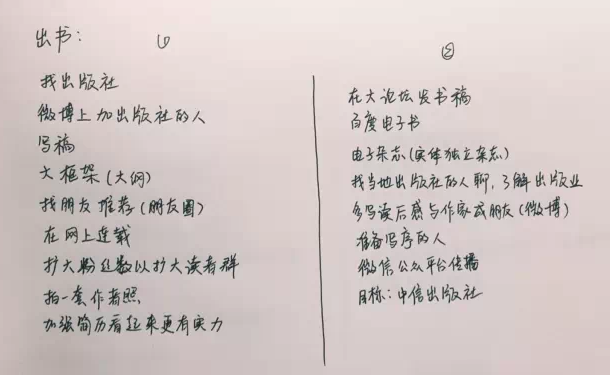 出书： ①
找出版社
微博上加出版社的人
写稿
大框架(大纲)
找朋友推荐(朋友圈)
在网上连载
扩大粉丝数以扩大读者群
拍一套作者照
加强简历看起来更有实力
②
在大论坛发书稿
百度电子书
电子杂志(实体独立杂志)
找当地出版社的人聊,了解出版业
多写读后感与作家成朋友(微博)
准备写序的人
微信公众平台传播
目标：中信出版社